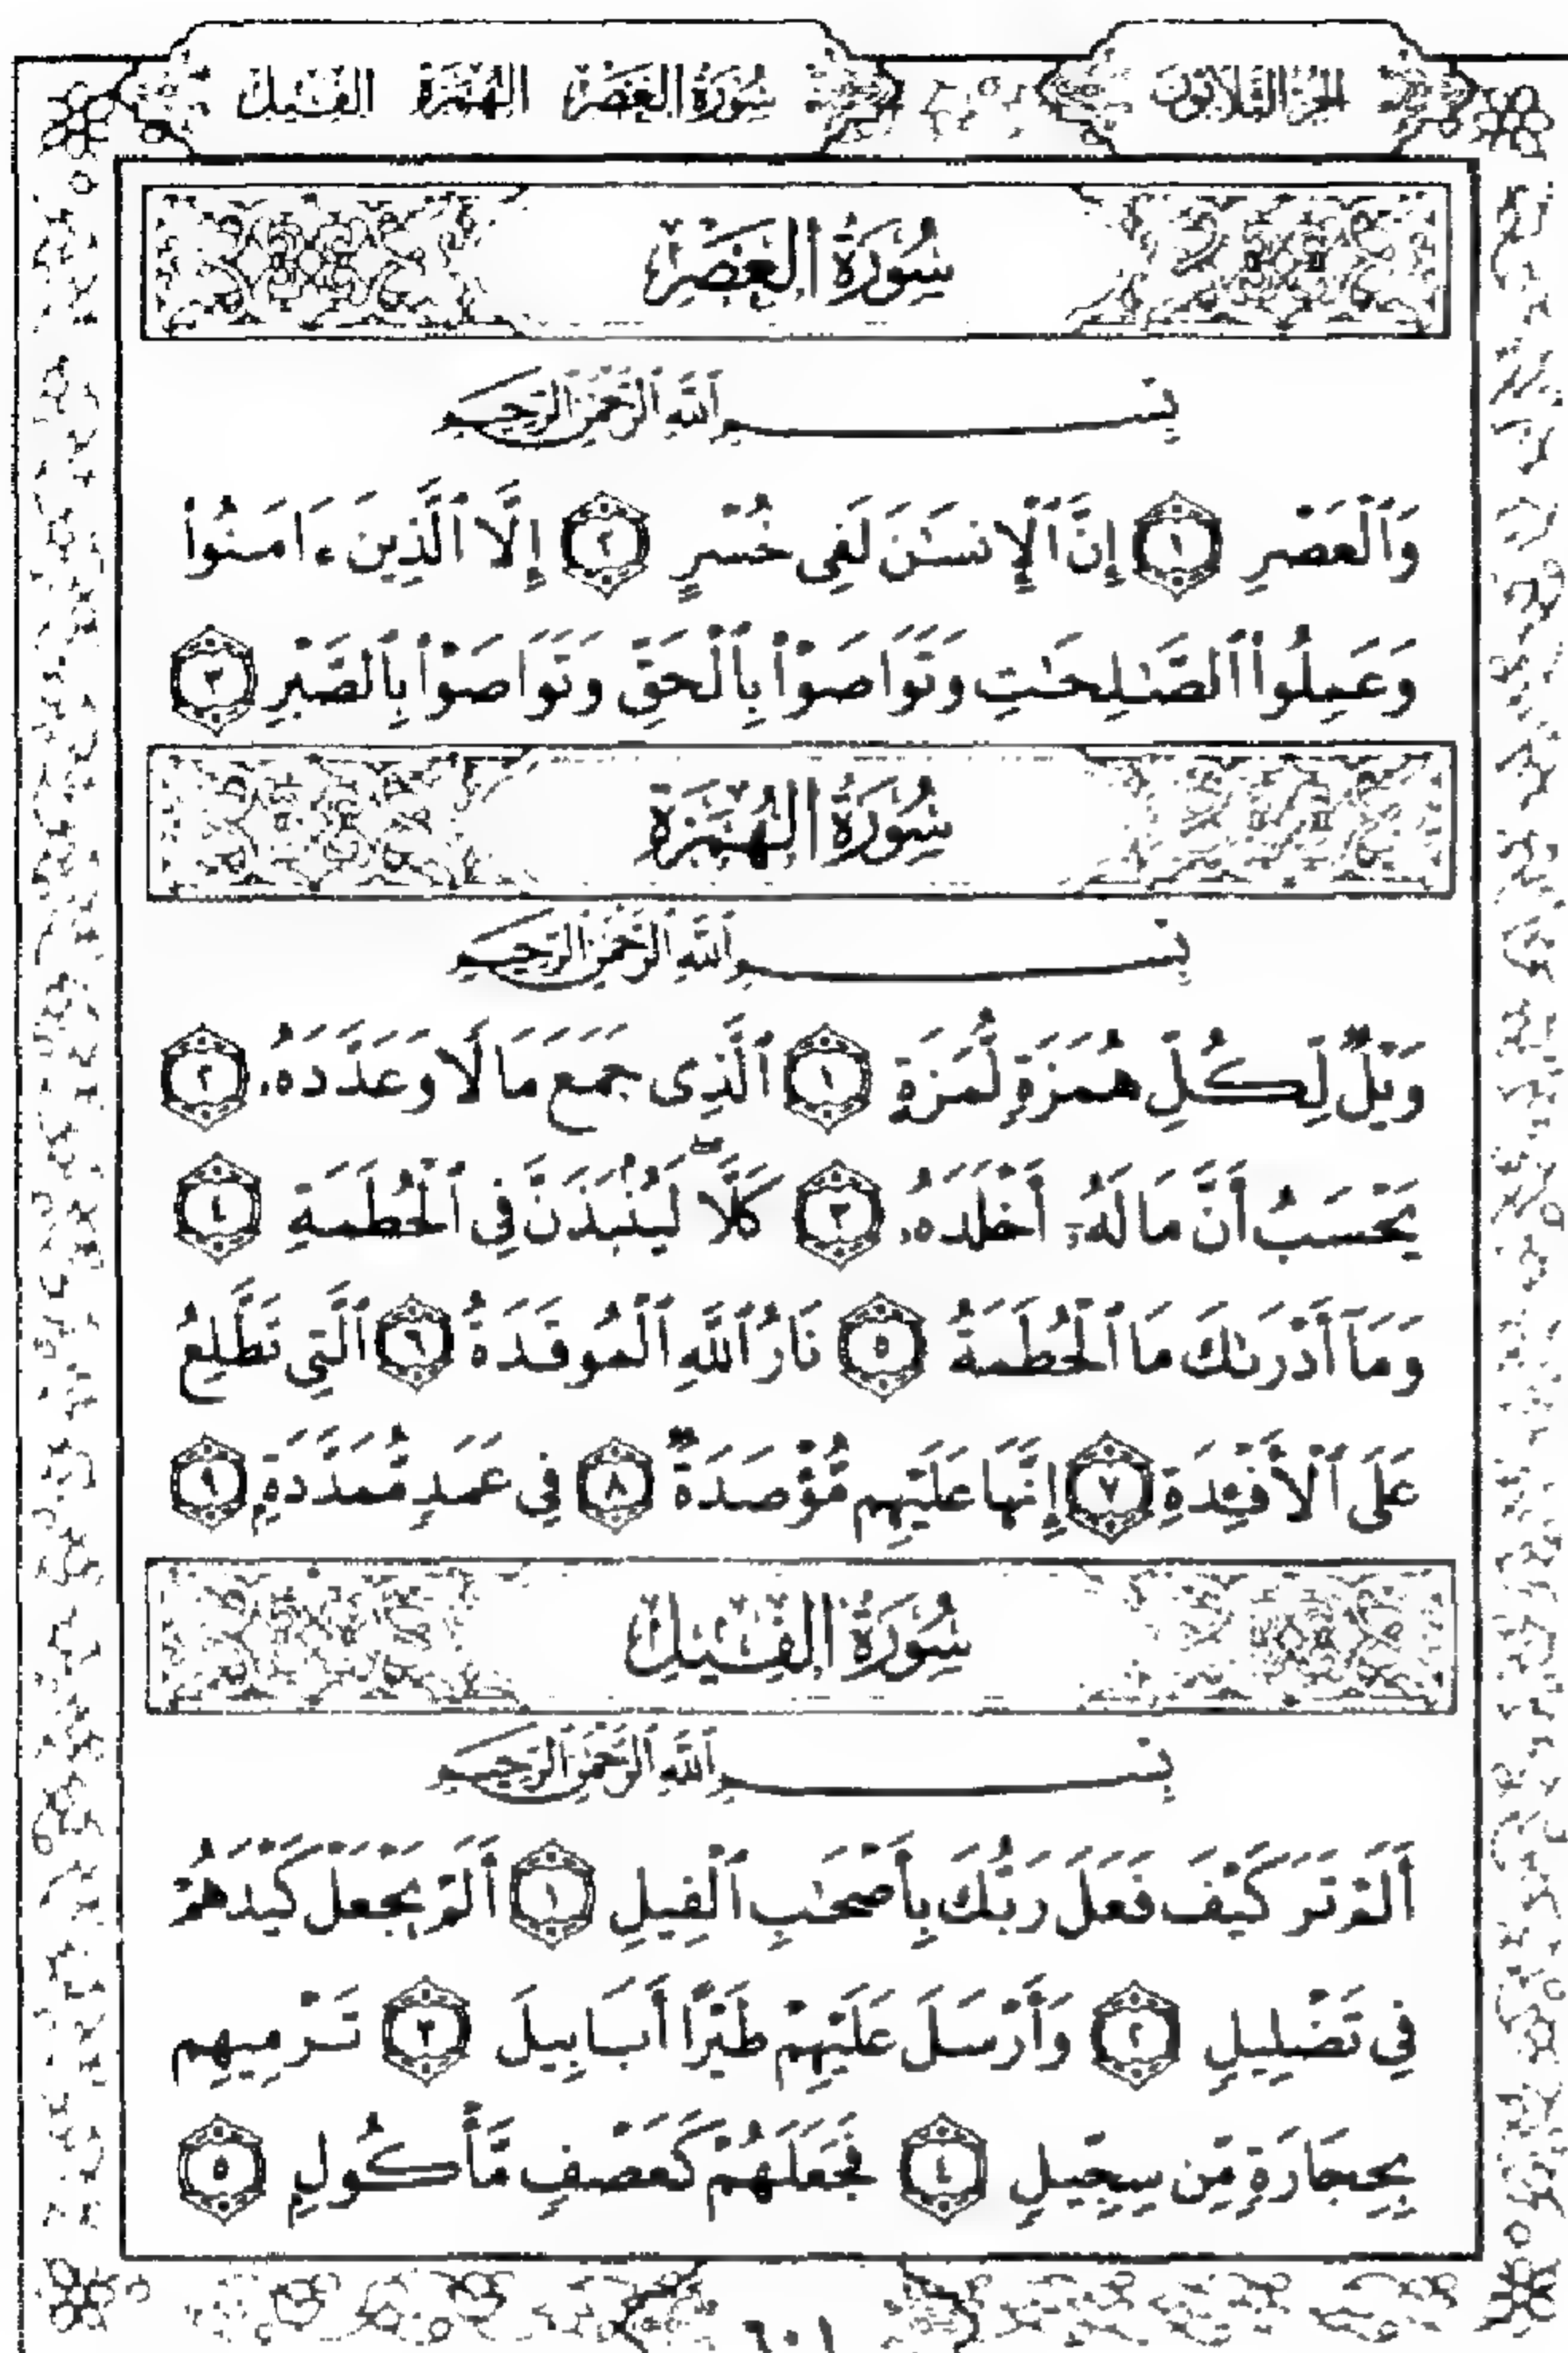 الجزء الثلاثون سورة العصر الهمزة الفيل
سُورَةُ العَصْرِ
بِسْمِ ٱللَّهِ ٱلرَّحْمَٰنِ ٱلرَّحِيمِ
وَٱلْعَصْرِ ١ إِنَّ ٱلْإِنسَٰنَ لَفِى خُسْرٍ ٢ إِلَّا ٱلَّذِينَ ءَامَنُوا۟
وَعَمِلُوا۟ ٱلصَّٰلِحَٰتِ وَتَوَاصَوْا۟ بِٱلْحَقِّ وَتَوَاصَوْا۟ بِٱلصَّبْرِ ٣
سُورَةُ الهُمَزَةِ
بِسْمِ ٱللَّهِ ٱلرَّحْمَٰنِ ٱلرَّحِيمِ
وَيْلٌ لِّكُلِّ هُمَزَةٍ لُّمَزَةٍ ١ ٱلَّذِى جَمَعَ مَالًا وَعَدَّدَهُۥ ٢
يَحْسَبُ أَنَّ مَالَهُۥٓ أَخْلَدَهُۥ ٣ كَلَّا ۖ لَيُنۢبَذَنَّ فِى ٱلْحُطَمَةِ ٤
وَمَآ أَدْرَىٰكَ مَا ٱلْحُطَمَةُ ٥ نَارُ ٱللَّهِ ٱلْمُوقَدَةُ ٦ ٱلَّتِى تَطَّلِعُ
عَلَى ٱلْأَفْـِٔدَةِ ٧ إِنَّهَا عَلَيْهِم مُّؤْصَدَةٌ ٨ فِى عَمَدٍ مُّمَدَّدَةٍۭ ٩
سُورَةُ الفِيلِ
بِسْمِ ٱللَّهِ ٱلرَّحْمَٰنِ ٱلرَّحِيمِ
أَلَمْ تَرَ كَيْفَ فَعَلَ رَبُّكَ بِأَصْحَٰبِ ٱلْفِيلِ ١ أَلَمْ يَجْعَلْ كَيْدَهُمْ
فِى تَضْلِيلٍ ٢ وَأَرْسَلَ عَلَيْهِمْ طَيْرًا أَبَابِيلَ ٣ تَرْمِيهِم
بِحِجَارَةٍ مِّن سِجِّيلٍ ٤ فَجَعَلَهُمْ كَعَصْفٍ مَّأْكُولٍۭ ٥
٦٠١